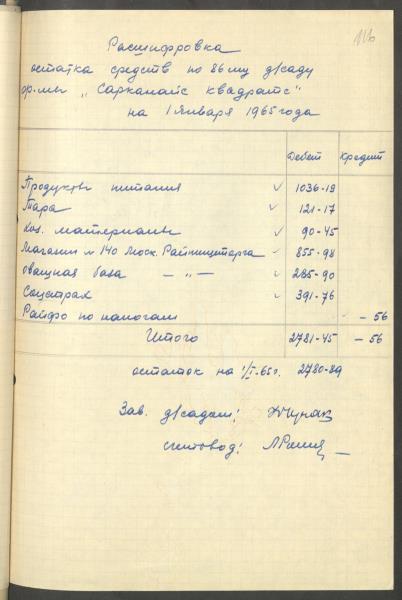 116
Расшифровка
остатка средств по 86му д/саду
ф.мы "Сарканайс квадратс"
на 1 Января 1965 года
Дебет Кредит
Продукты питания ✓ 1036-19
Тара ✓ 121-17
Хоз. материалы ✓ 90-45
Магазин № 140 Моск. Райпищеторга ✓ 855-98
Овощная база — " — ✓ 285-90
Соцстрах ✓ 391-76
Райфо по налогам - 56
Итого 2781-45 - 56
остаток на 1/I-65г. 2780-89
Зав. д/садом:
счетовод: